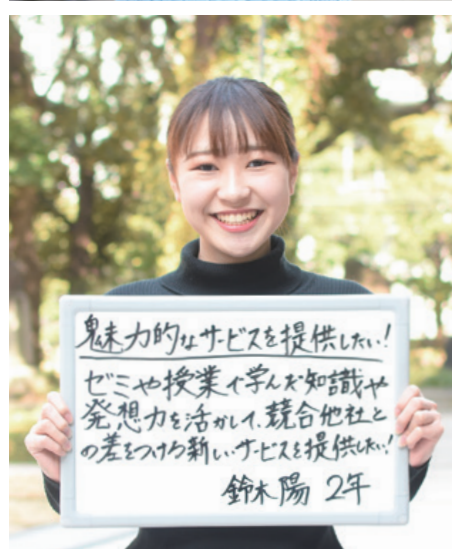 魅力的なサービスを提供したい!
ゼミや授業で学んだ知識や
発想力を活かして、競合他社と
の差をつける新しいサービスを提供したい!
鈴木陽 2年